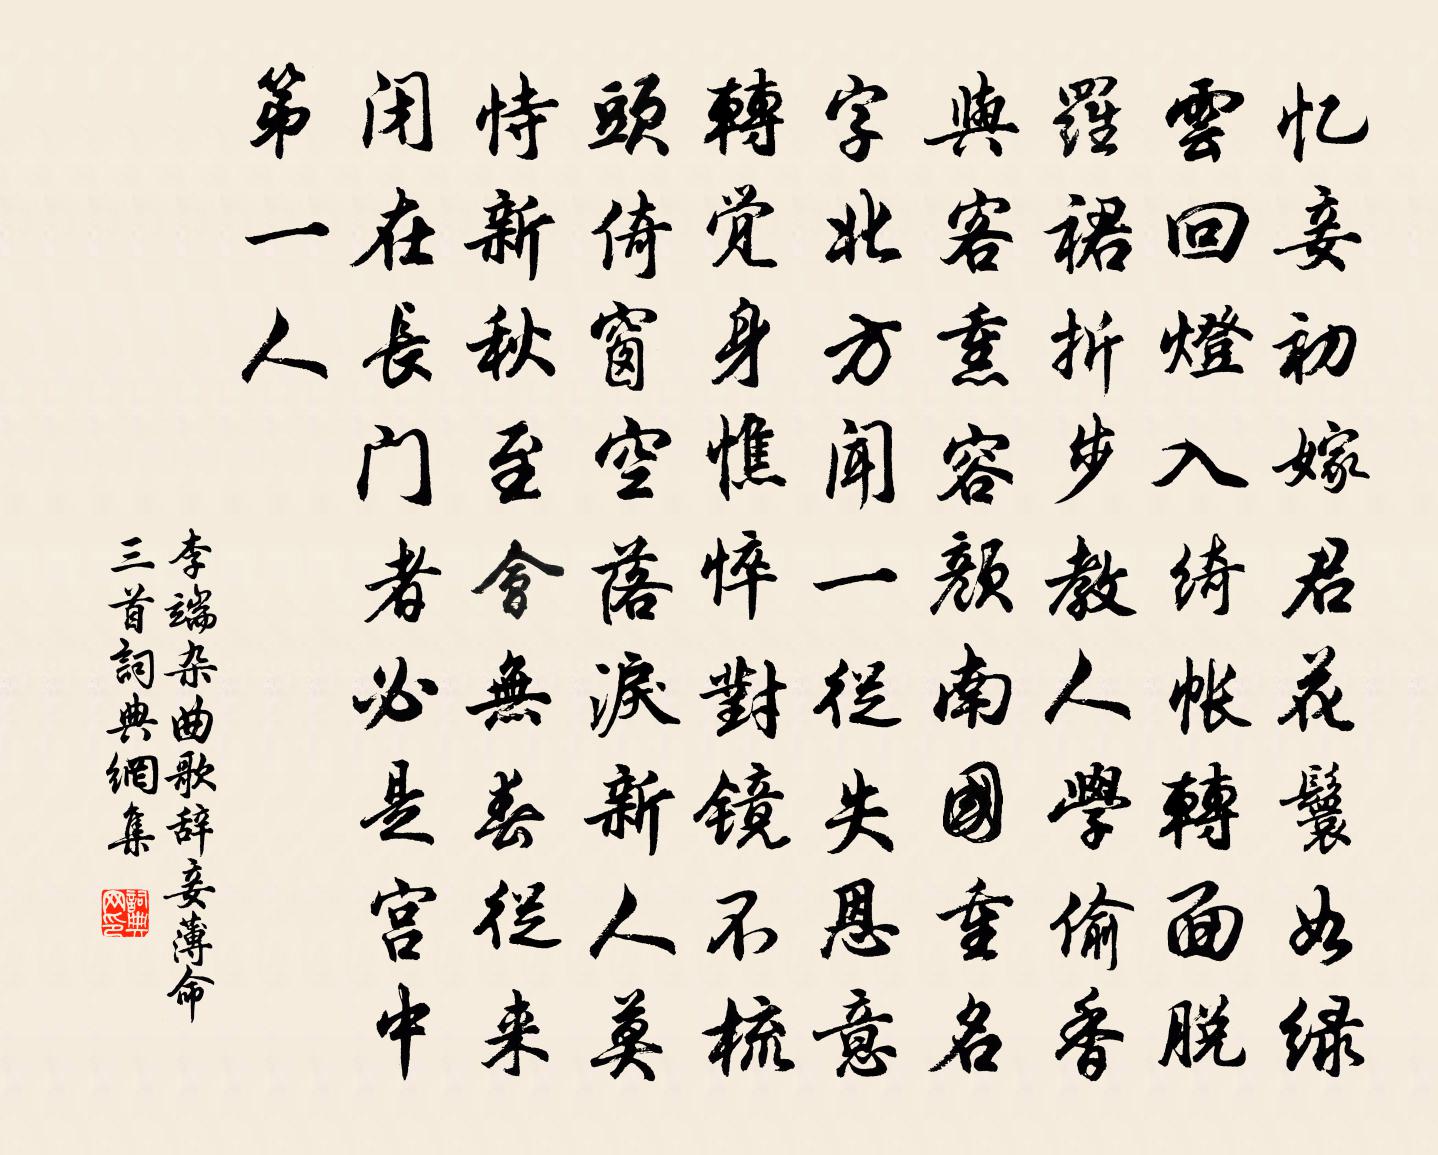 忆妾初嫁君花鬟如绿
雲回燈入绮帐轉面脱
羅裙折步教人學偷香
與客熏容顔南國重名
字北方闻一從失恩意
轉觉身憔悴對镜不梳
頭倚窗空落淚新人莫
恃新秋至會無春從来
闭在長门者必是宫中
第一人
李端杂曲歌辞妾薄命
三首詞典網集
詞典
网印